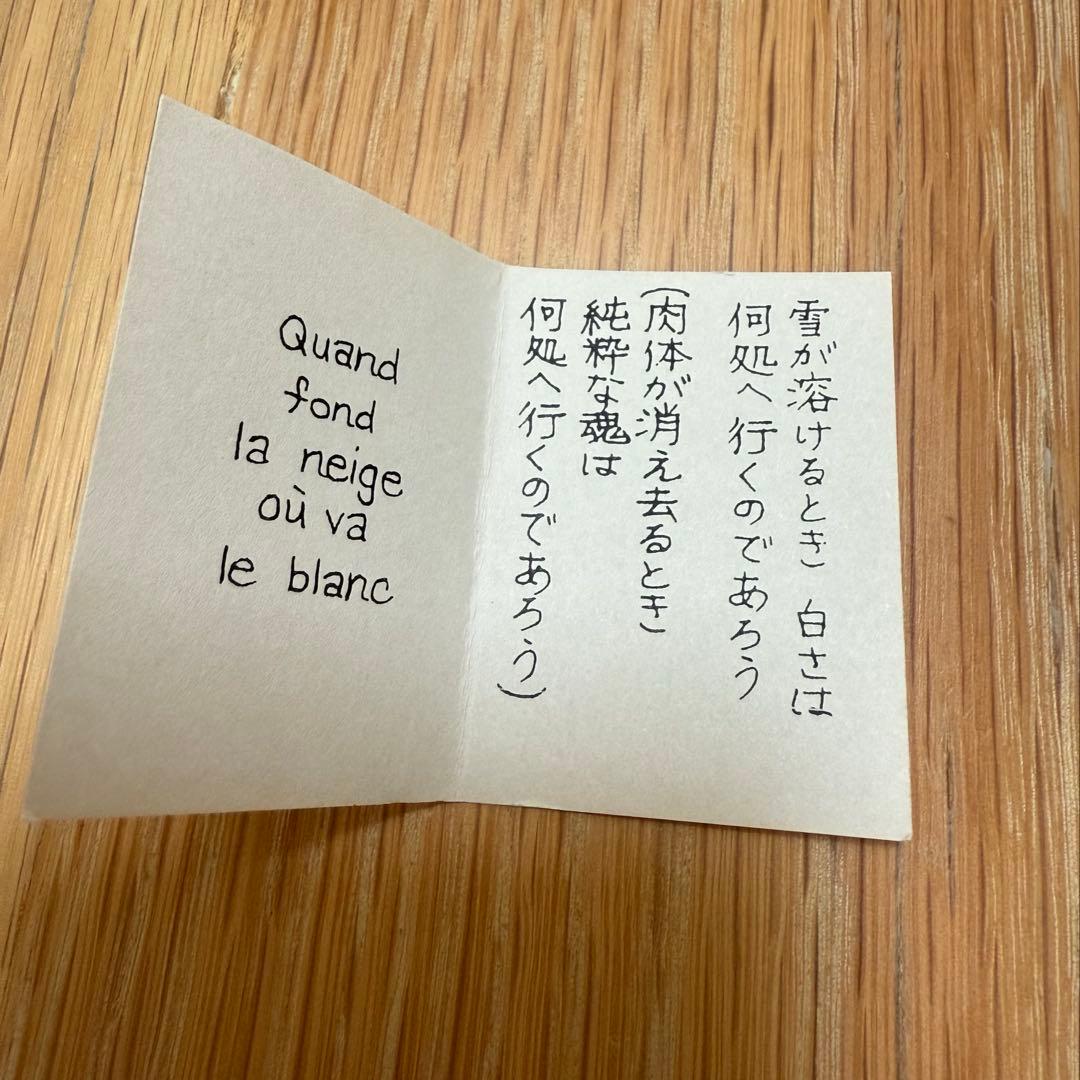 Quand
fond
la neige
où va
le blanc
雪が溶けるとき 白さは
何処へ行くのであろう
(肉体が消え去るとき
純粋な魂は
何処へ行くのであろう)